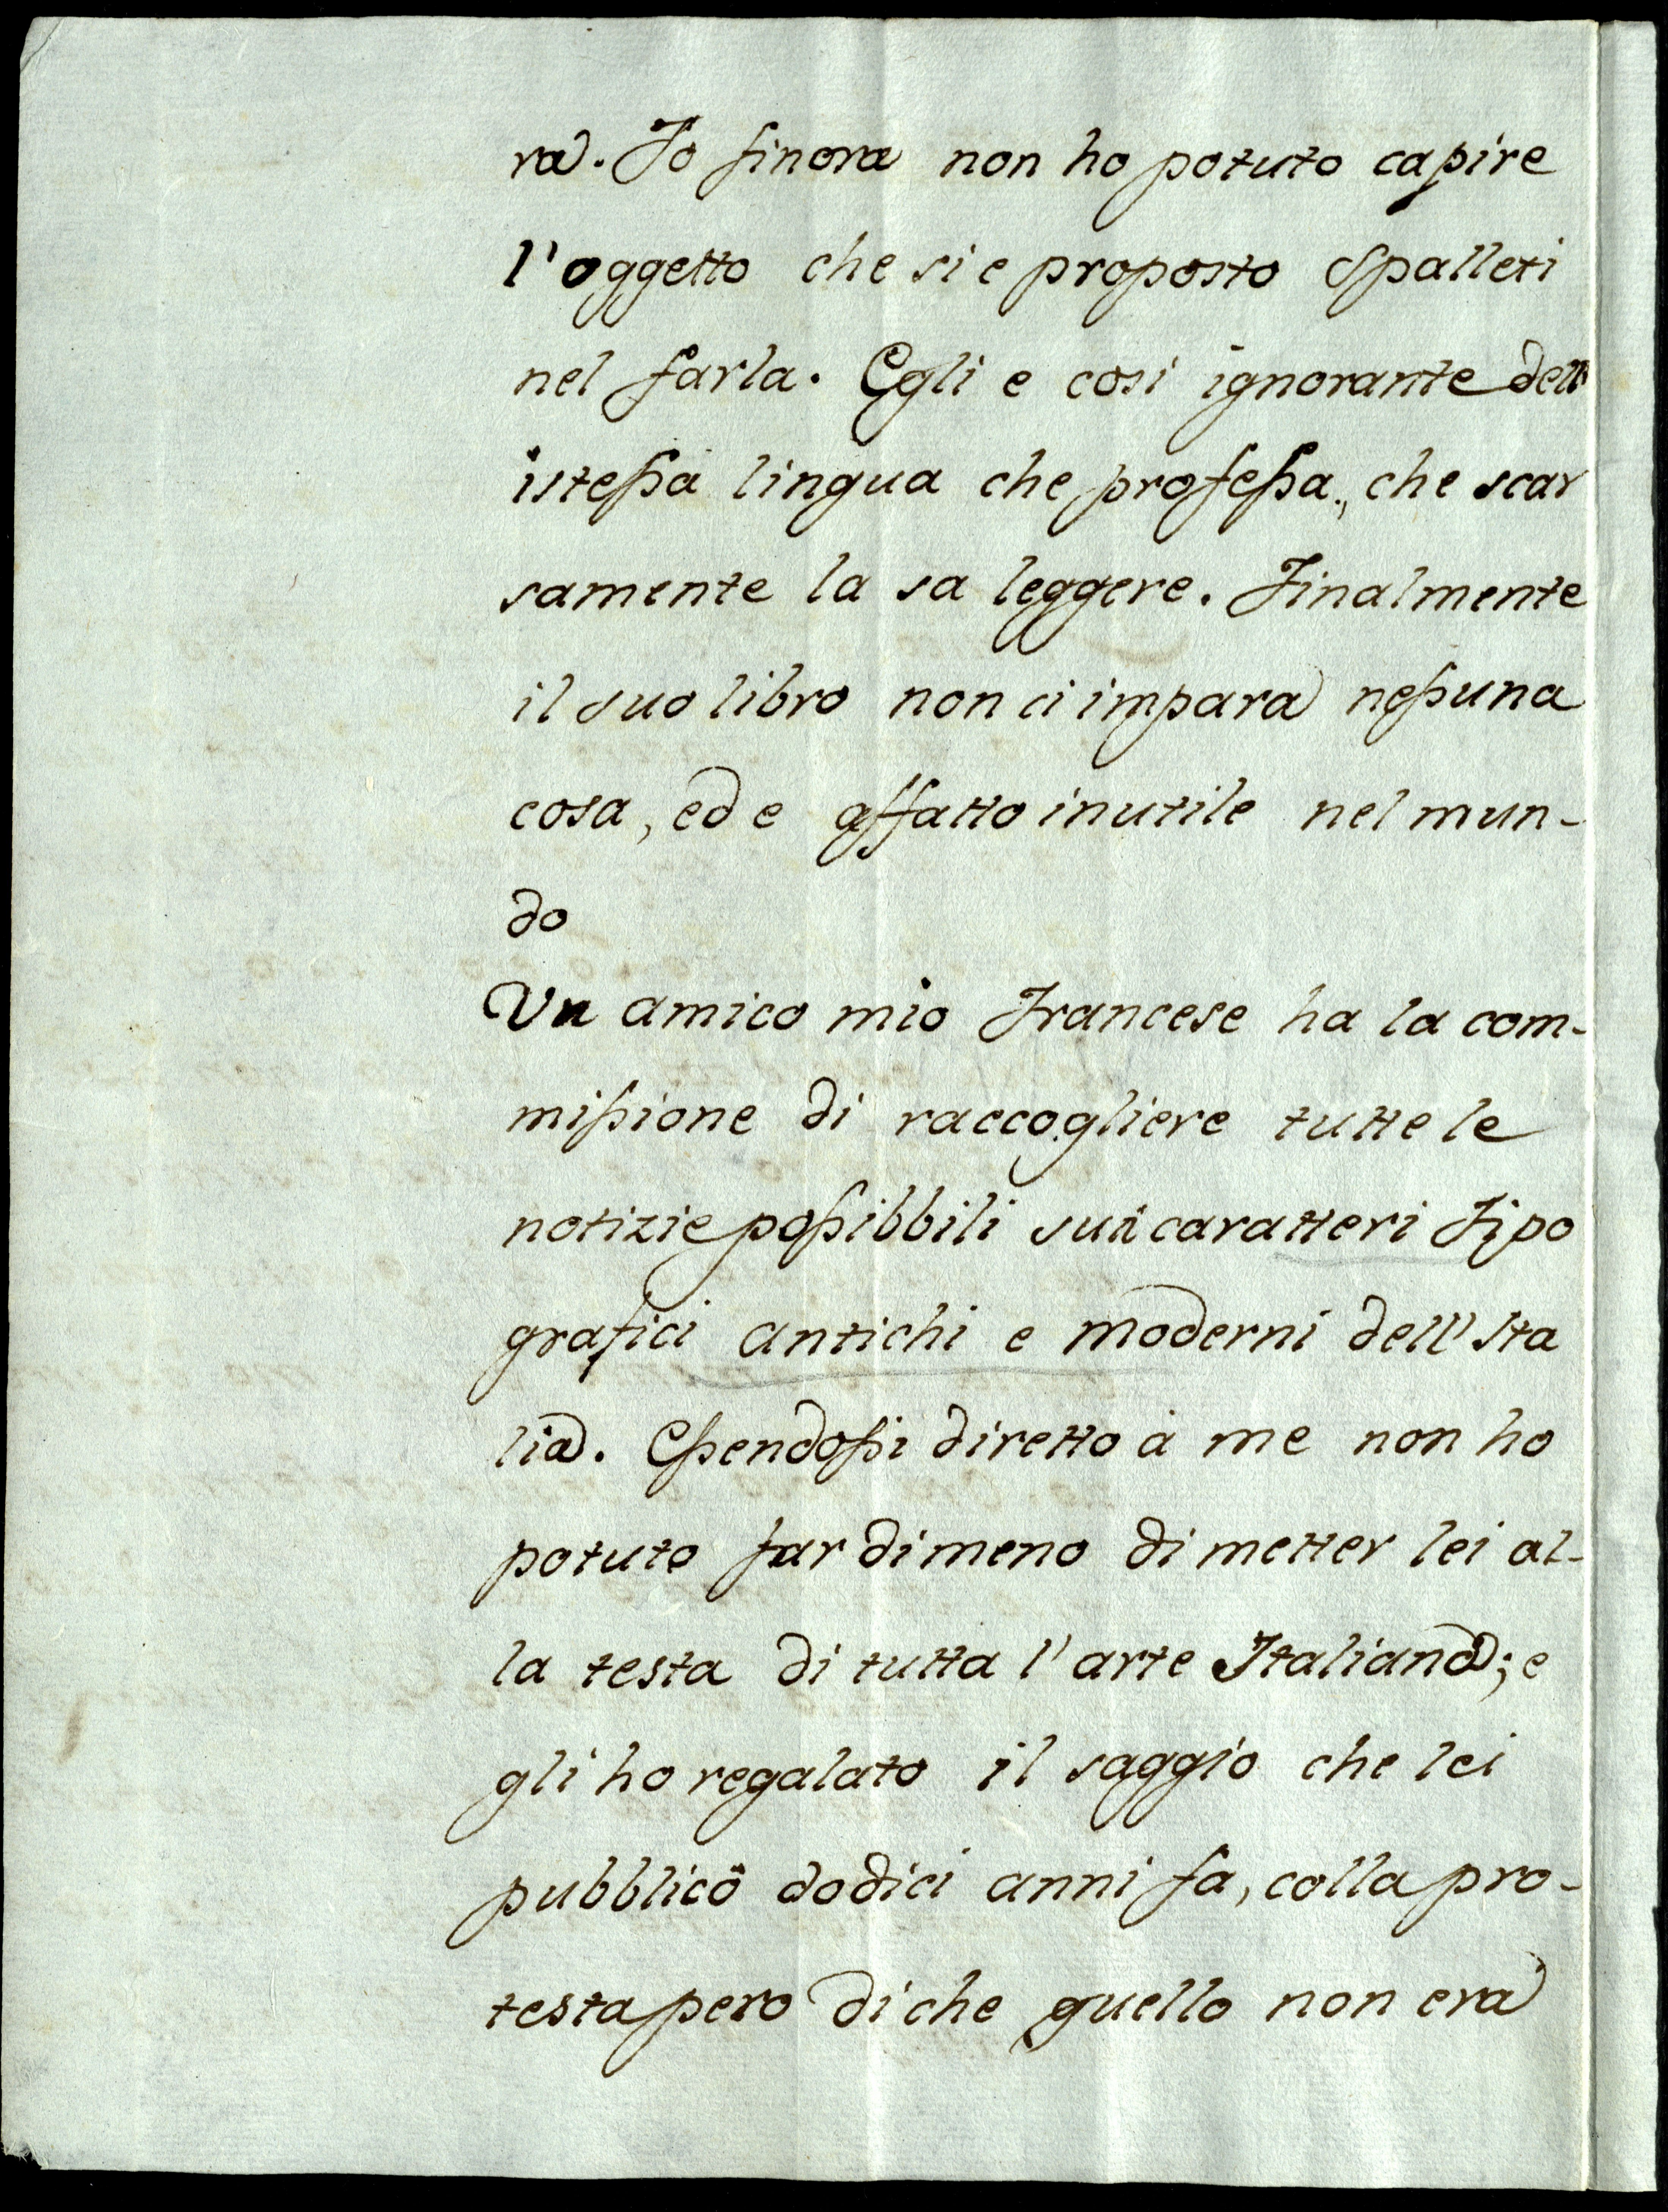 ra. Io finora non ho potuto capire
l'oggetto che si e proposto Spalleti
nel farla. Egli e cosi ignorante dell'
istessa lingua che professa, che scar
samente la sa leggere. Finalmente
il suo libro non ci impara nessuna
cosa, ed e affatto inutile nel mun-
do
Un amico mio Francese ha la com-
missione di raccogliere tutte le
notizie possibbili sui caratteri Tipo
grafici antichi e moderni dell'Ita
lia. Essendossi diretto à me non ho
potuto far di meno di metter lei al-
la testa di tutta l'arte Italiana; e
gli ho regalato il saggio che lei
pubblicô dodici anni fa, colla pro-
testa pero di che quello non era